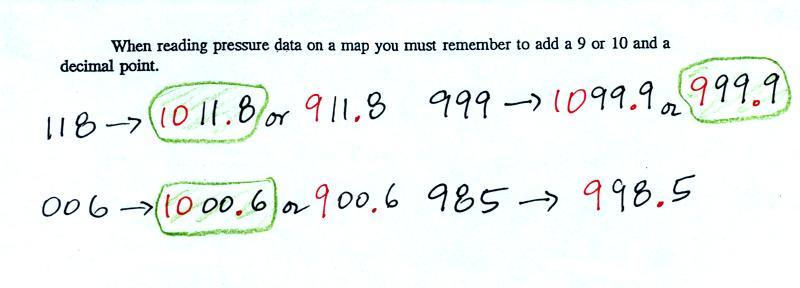 When reading pressure data on a map you must remember to add a 9 or 10 and a
decimal point.
118 → 1011.8 or 911.8 999 → 1099.9 or 999.9
006 → 1000.6 or 900.6 985 → 998.5